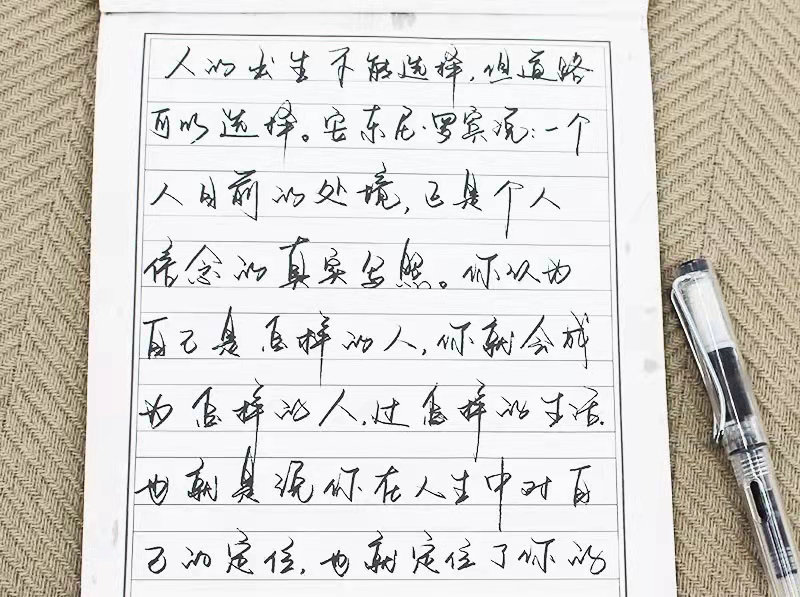 人的出生不能选择，但道路
可以选择。安东尼·罗宾说：一个
人目前的处境，正是个人
信念的真实写照。你以为
自己是怎样的人，你就会成
为怎样的人，过怎样的生活.
也就是说你在人生中对自
己的定位，也就定位了你的